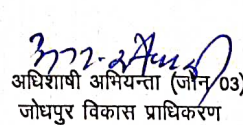 अधिशाषी अभियन्ता (जोन 03)
जोधपुर विकास प्राधिकरण